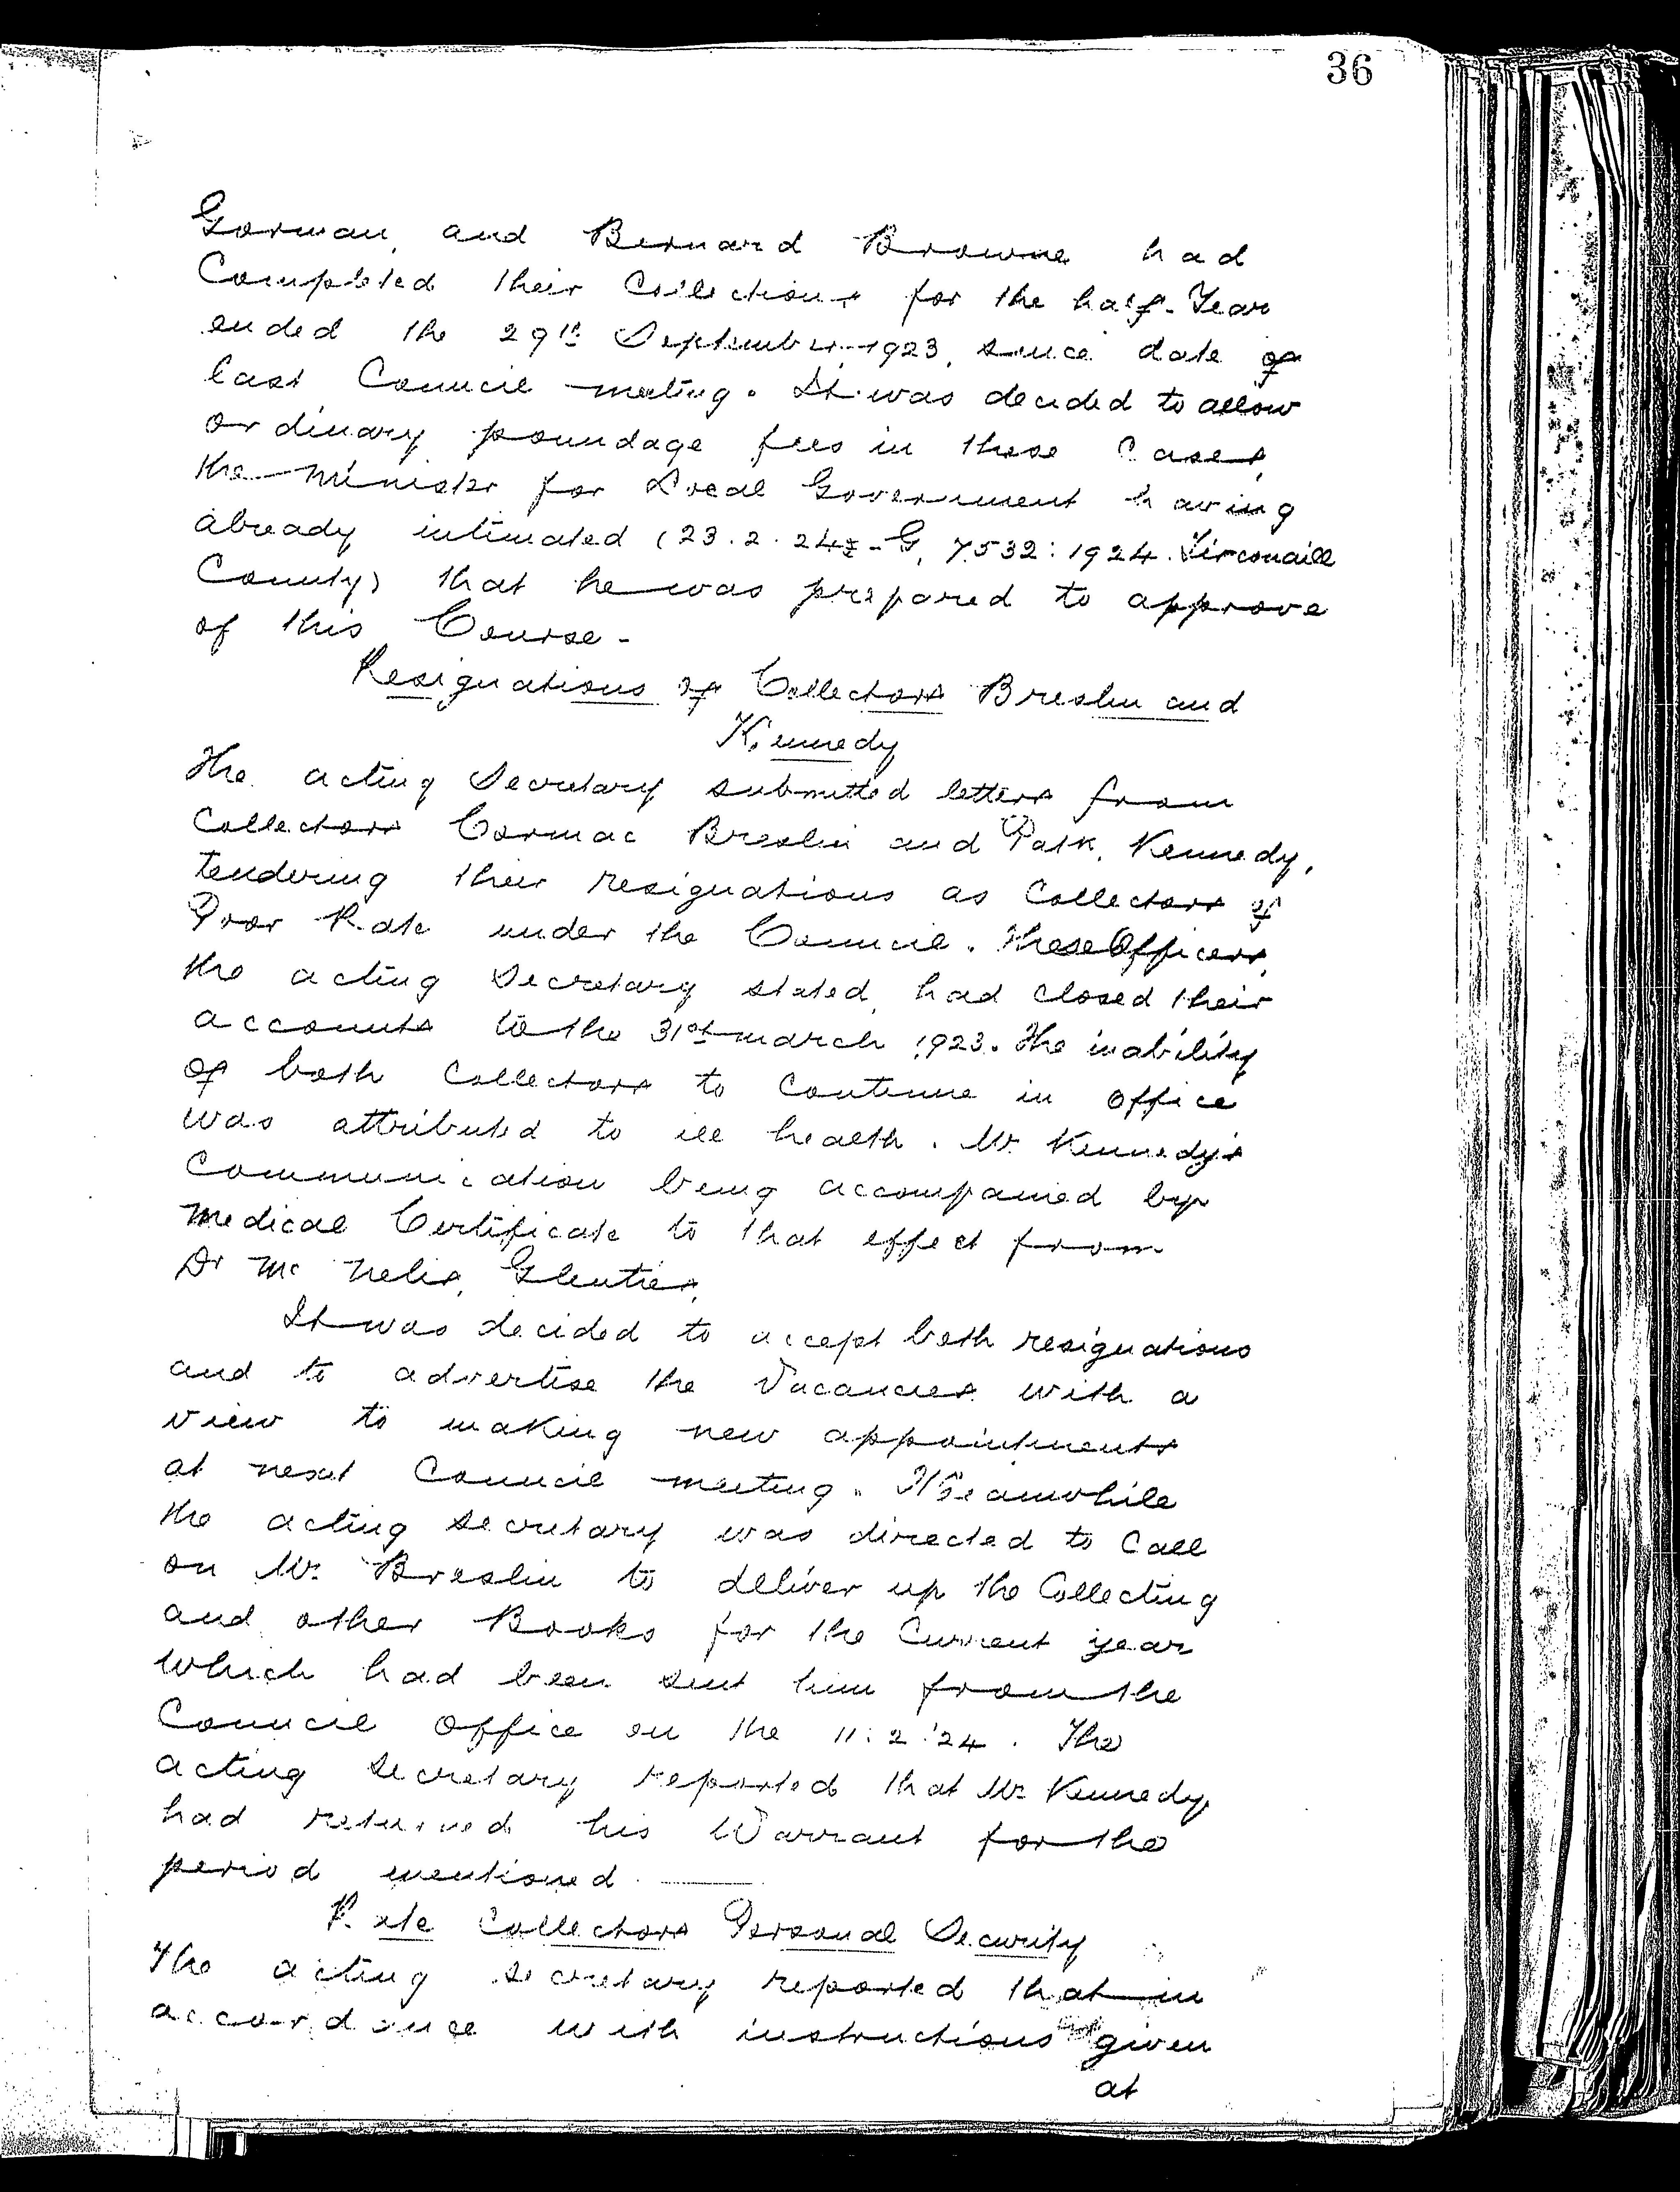 36
Gorman, and Bernard Browne had
Completed their Collections for the half-Year
ended the 29th September 1923, since date of
last Council meeting. It was decided to allow
ordinary poundage fees in these Cases,
the Minister for Local Government having
already intimated (23.2.24 - G, 7532: 1924. Tirconaill
County) that he was prepared to approve
of this Course -
Resignations of Collectors Breslin and
Kennedy
The acting Secretary submitted letters from
Collectors Cormac Breslin and Patk. Kennedy,
tendering their resignations as Collectors of
Poor Rate under the Council. These Officers,
the acting Secretary stated, had closed their
accounts to the 31st March 1923. The inability
of both Collectors to Continue in Office
was attributed to ill health. Mr. Kennedy's
Communication being accompanied by
Medical Certificate to that effect from
Dr Mc Nelis, Glenties.
It was decided to accept both resignations
and to advertise the Vacancies with a
view to making new appointments
at next Council meeting. Meanwhile
the acting Secretary was directed to Call
on Mr. Breslin to deliver up the Collecting
and other Books for the Current year
which had been sent him from the
Council Office on the 11:2:'24. The
acting Secretary reported that Mr. Kennedy
had returned his Warrant for the
period mentioned.
Rate Collectors Personal Security
The acting Secretary reported that in
accordance with instructions given
at